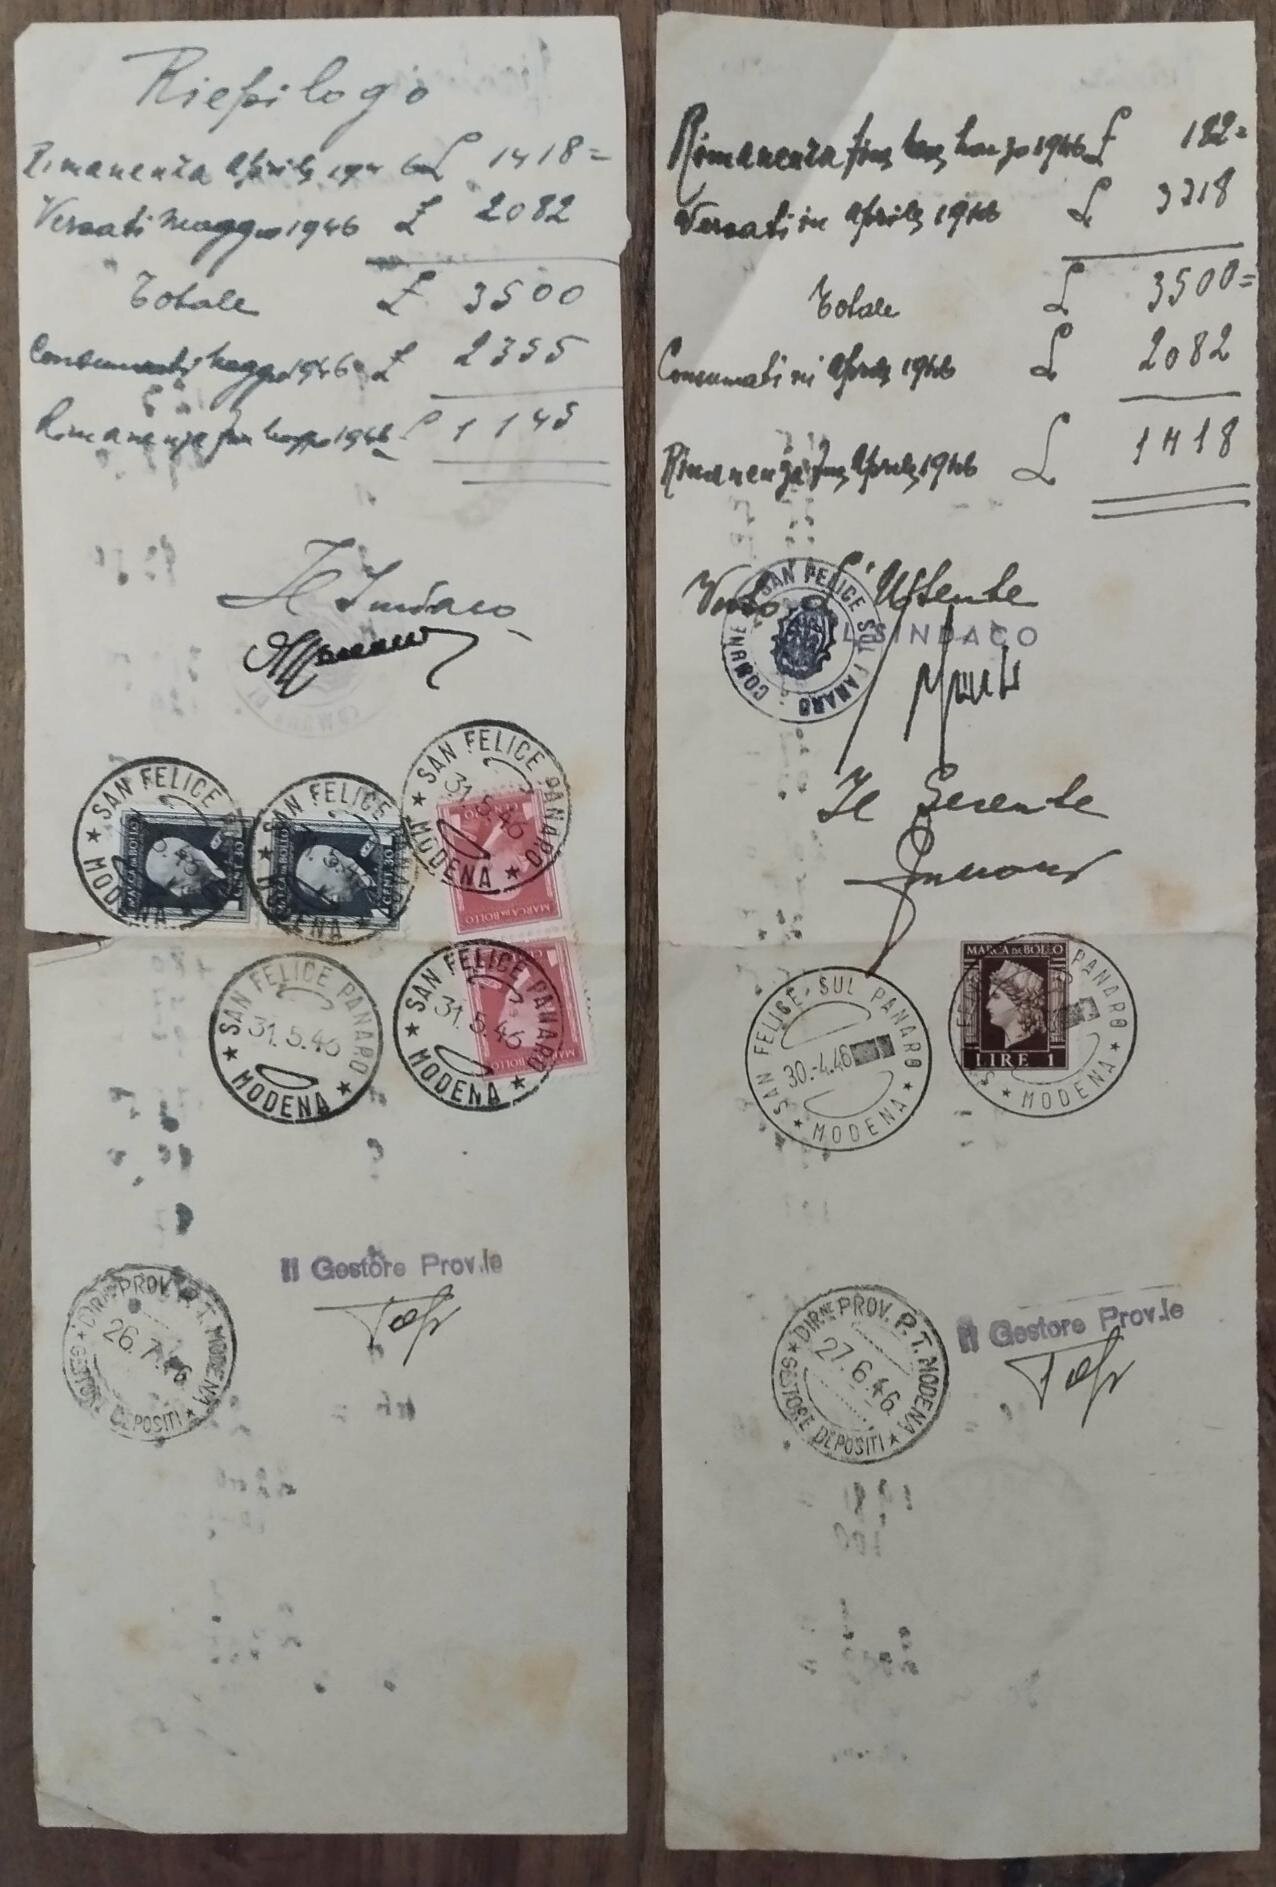 Riepilogo
Rimanenza Aprile 1946 £ 1418=
Versati Maggio 1946 £ 2082
Totale £ 3500
Consumati Maggio 1946 £ 2355
Rimanenza fine Maggio 1946 £ 1145
Il Sindaco
SAN FELICE
MODENA
MARCA DA BOLLO
CENT. 50
SAN FELICE
MODENA
MARCA DA BOLLO
CENT. 50
SAN FELICE PANARO
31.5.46
MODENA
MARCA DA BOLLO
SAN FELICE PANARO
31.5.46
MODENA
SAN FELICE PANARO
31.5.46
MODENA
MARCA DA BOLLO
Il Gestore Prov.le
DIR.NE PROV. P.T. MODENA
26.7.46
GESTORE DEPOSITI
Rimanenza fine Marzo 1946 £ 182=
Versati in Aprile 1946 £ 3318
Totale £ 3500=
Consumati in Aprile 1946 £ 2082
Rimanenza fine Aprile 1946 £ 1418
Visto L'Utente
COMUNE DI SAN FELICE SUL PANARO
IL SINDACO
Il Gerente
MARCA DA BOLLO
LIRE 1
SAN FELICE SUL PANARO
30.-4.46
MODENA
PANARO
MODENA
Il Gestore Prov.le
DIR.NE PROV. P.T. MODENA
27.6.46.
GESTORE DEPOSITI